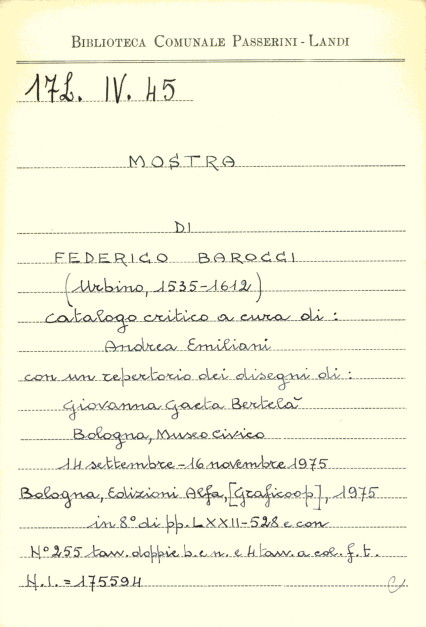 BIBLIOTECA COMUNALE PASSERINI - LANDI
17L. IV. 45
MOSTRA
DI
FEDERICO BAROCCI
(Urbino, 1535-1612)
catalogo critico a cura di :
Andrea Emiliani
con un repertorio dei disegni di :
Giovanna Gaeta Bertelà
Bologna, Museo Civico
14 settembre - 16 novembre 1975
Bologna, Edizioni Alfa, [Graficoop], 1975
in 8° di pp. LXXII-528 e con
N° 255 tavv. doppie b. e n. e 4 tavv. a col. f. t.
N. i. = 175594